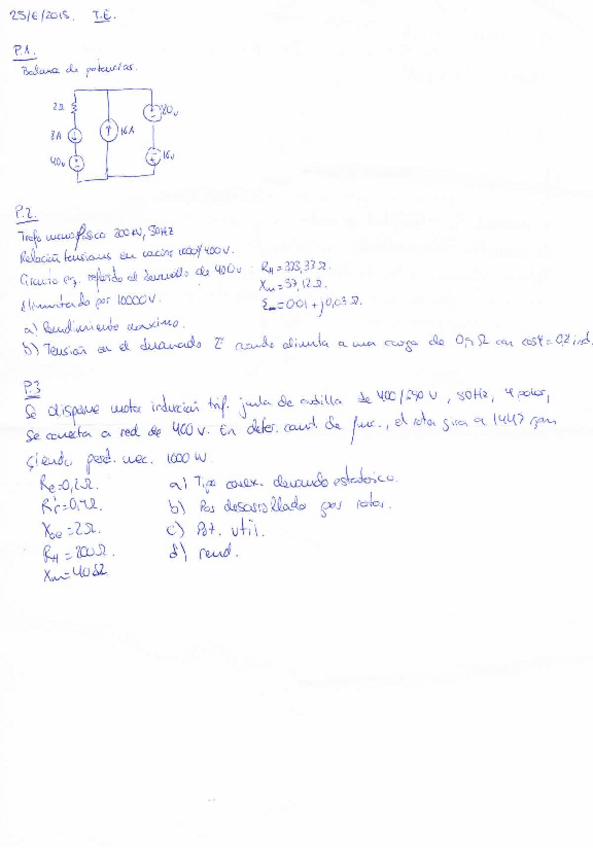 25/6/2015. T.E.
P.1.
Balance de potencias.
2Ω
20V
8A
16A
40V
16V
P.2.
Trafo monofásico 200 kV, 50Hz
Relación tensiones en vacío: 10000/400V.
Circuito eq. referido al devanado de 400V: RH = 333,33Ω.
Xm = 37,12Ω.
= 0,01 + j0,03Ω.
Alimentado por 10000V.
a) Rendimiento máximo.
b) Tensión en el devanado cuando alimenta a una carga de Ω con cosφ = 0,8 ind.
P.3
Se dispone motor inducción trif. jaula de ardilla de 400/690 V, 50Hz, 4 polos,
Se conecta a red de 400V. En deter. cond. de func., el rotor gira a 1447 rpm
siendo perd. mec. 1000 W.
Re=0,2Ω. a) Tipo conex. devanado estatórico.
Rr'=0,4Ω. b) Par desarrollado por rotor.
Xcc=2Ω. c) Pot. util.
RH=200Ω. d) rend.
Xm=40Ω